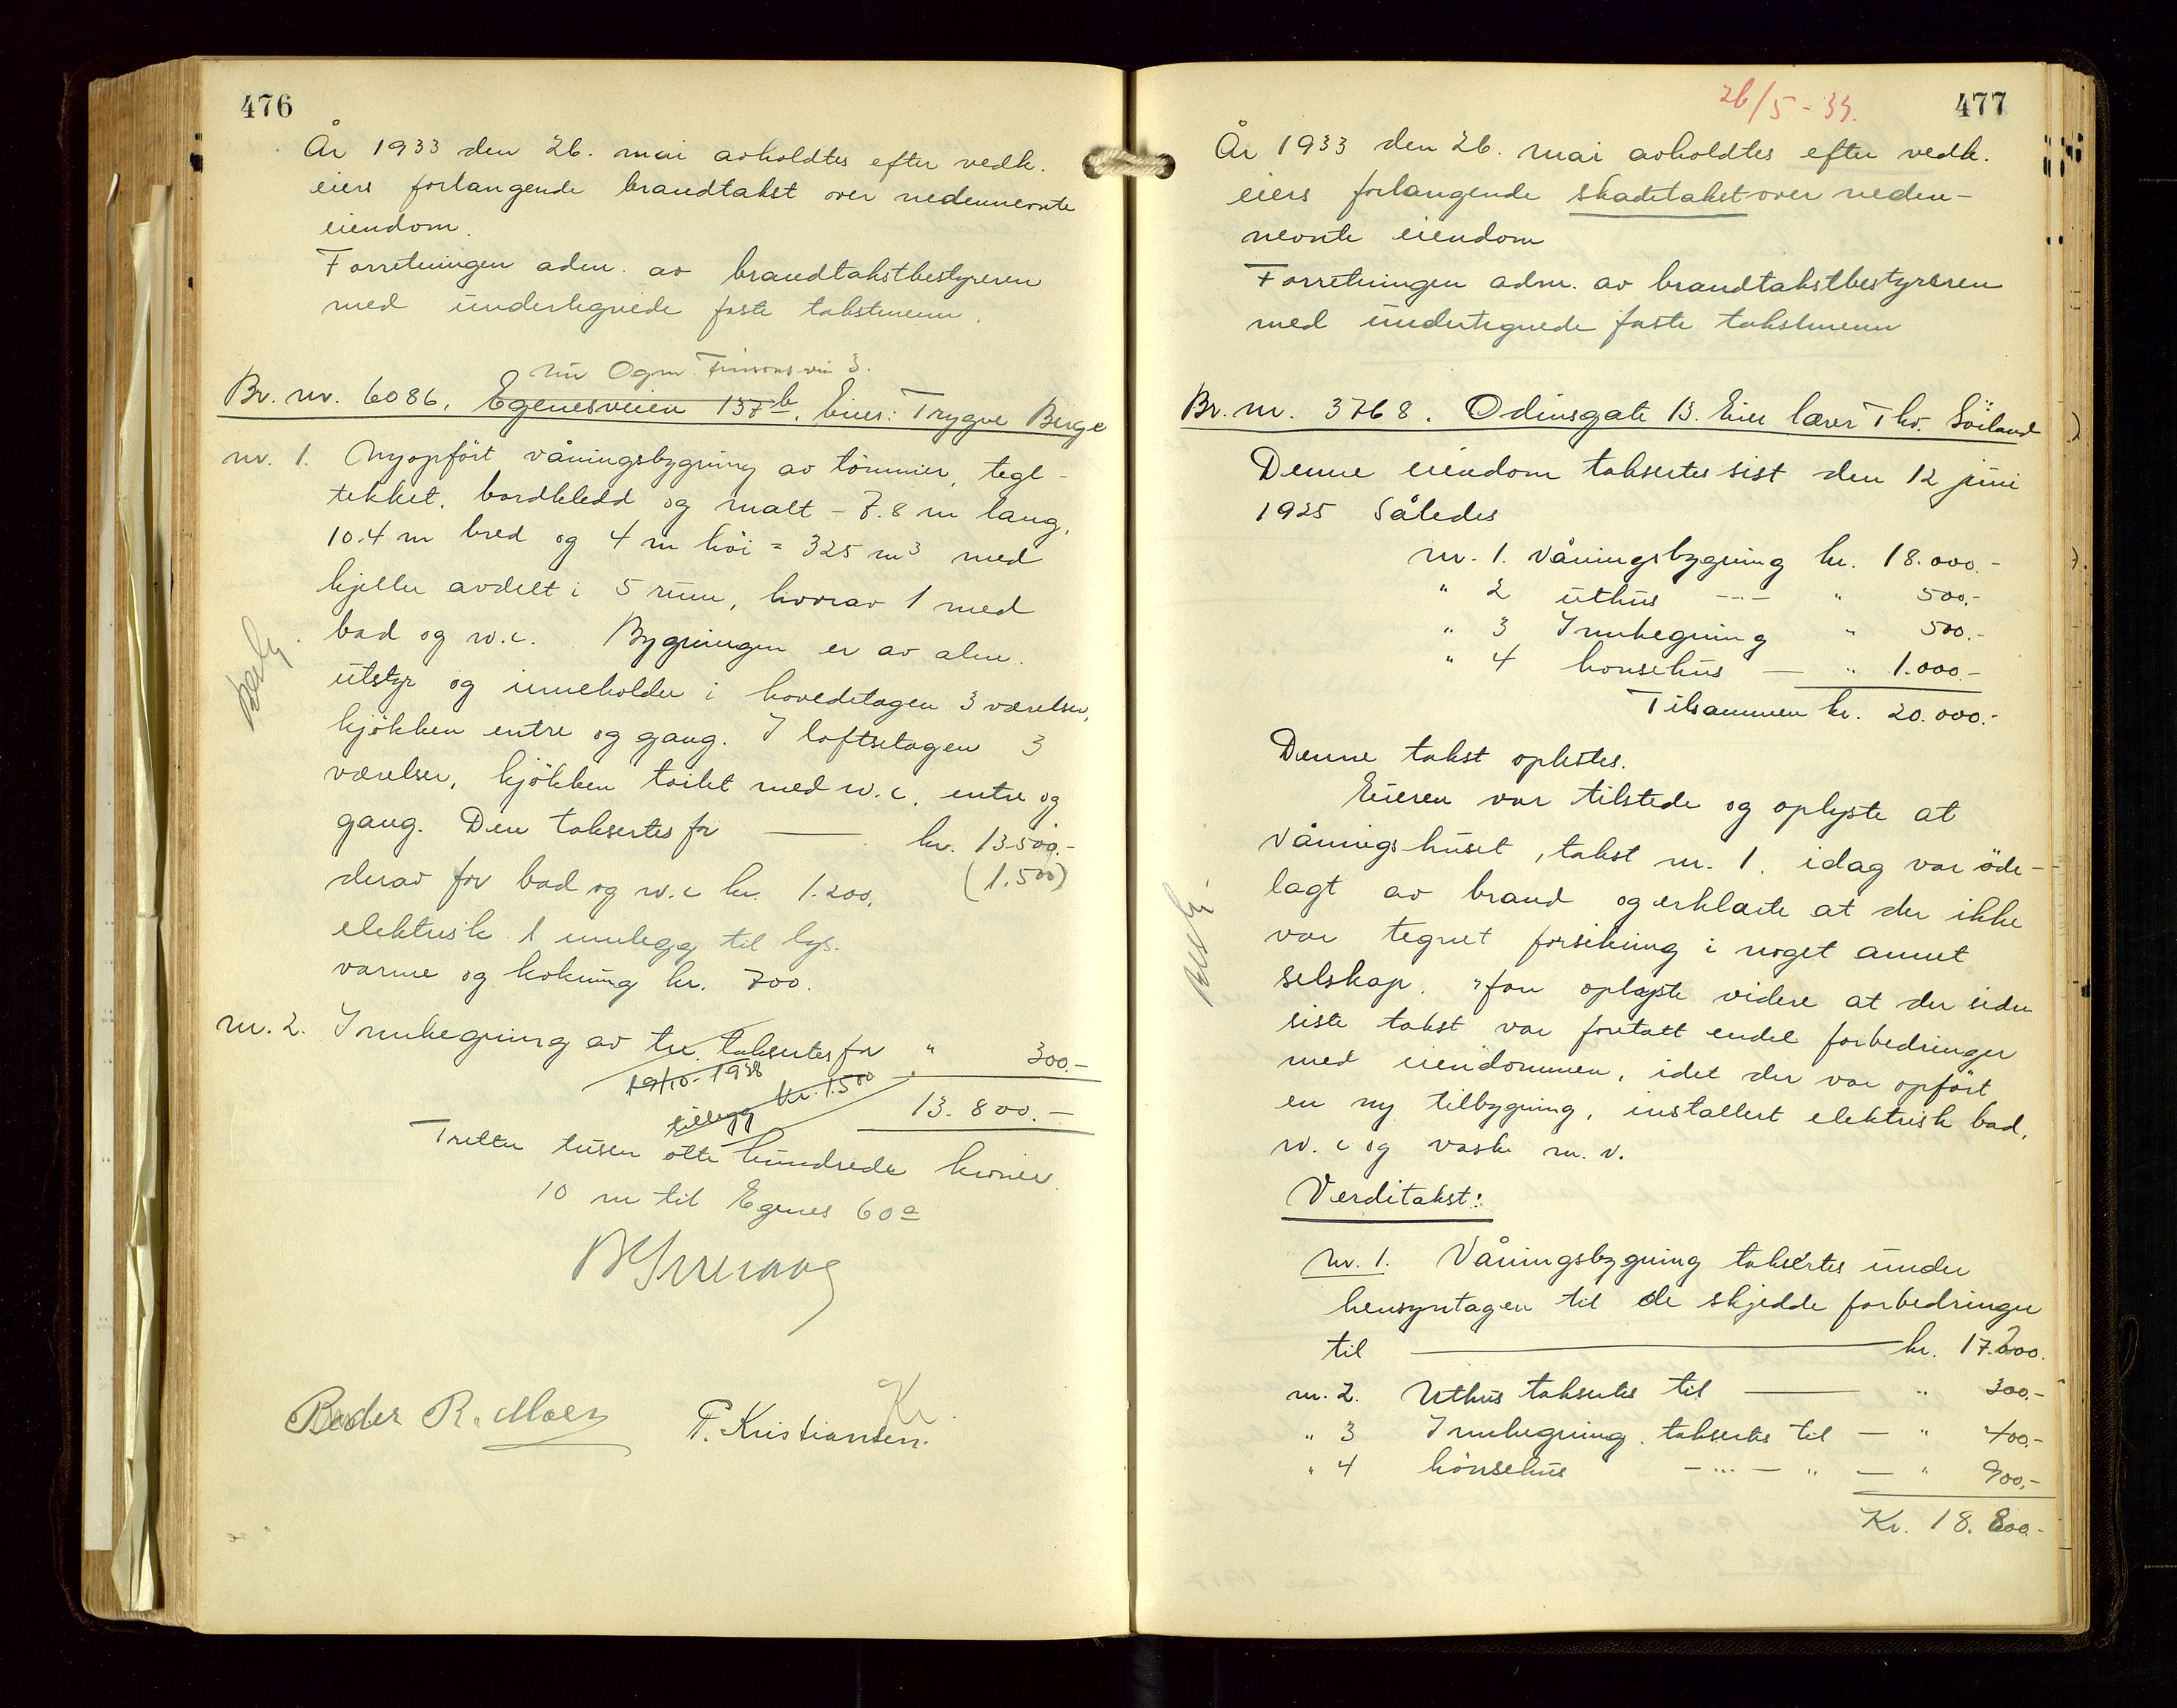 476
År 1933 den 26. mai avholdtes efter vedk.
eiers forlangende brandtakst over nedennevnte
eiendom.
Forretningen adm. av brandtakstbestyreren
med undertegnede faste takstmenn.
nu Ogm. Finsons vei 3.
Br. nr. 6086, Egenesveien 137b. Eier: Trygve Berge
nr. 1. Nyopfört våningsbygning av tömmer, tegl-
tekket, bordkledd og malt - 7.8 m lang,
10.4 m bred og 4 m höi = 325 m3 med
kjeller avdelt i 5 rum, hvorav 1 med
bad og w.c. Bygningen er av alm.
utstyr og inneholder i hovedetagen 3 værelser,
kjökken entre og gang. I loftsetagen 3
værelser, kjökken toilet med w.c, entre og
gang. Den taksertes for — kr. 13500.-
derav for bad og w.c kr. 1.200. (1.500)
elektrisk innlegg til lys.
varme og kokning kr. 700.
nr. 2. Innhegning av tre. taksertes for " 300.-
19/10-1938
tillegg kr. 1.500
13.800.-
Tretten tusen otte hundrede kroner
10 m til Egenes 60a
Peder R. Moen
T. Kristiansen.
Kr.
26/5-33.
477
År 1933 den 26. mai avholdtes efter vedk.
eiers forlangende skadetakst over neden-
nevnte eiendom
Forretningen adm. av brandtakstbestyreren
med undertegnede faste takstmenn
Br. nr. 3768. Odinsgate 13. Eier lærer Thv. Söiland
Denne eiendom taksertes sist den 12 juni
1925 Således
nr. 1. Våningsbygning kr. 18.000.-
" 2 uthus --- " 500.-
" 3 Innhegning " 500.-
" 4 hönsehus — " 1.000.-
Tilsammen kr. 20.000.-
Denne takst oplestes.
Eieren var tilstede og oplyste at
våningshuset, takst nr. 1. idag var öde-
lagt av brand og erklærte at der ikke
var tegnet forsikring i noget annet
selskap. Han oplyste videre at der siden
siste takst var foretatt endel forbedringer
med eiendommen, idet der var opfört
en ny tilbygning, installert elektrisk bad,
w.c og vaske m. v.
Verditakst:
Nr. 1. Våningsbygning taksertes under
hensyntagen til de skjedde forbedringer
til — kr. 17.200.
nr. 2. Uthus taksertes til — " 300.-
" 3 Innhegning. taksertes til — " 400.-
" 4 hönsehus — " — " — " 900.-
Kr. 18.800.-